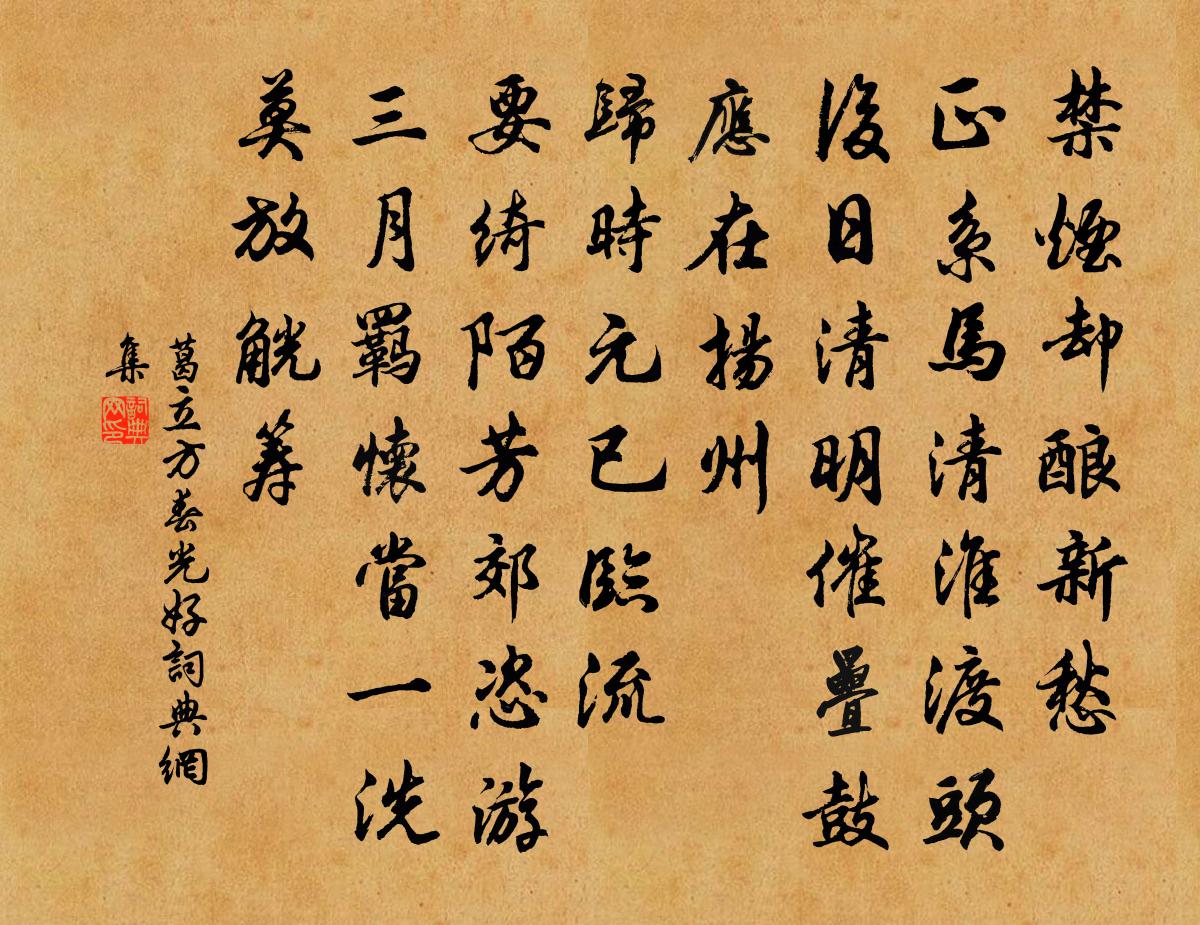 禁煙却酿新愁
正系馬清淮渡頭
後日清明催疊鼓
應在揚州
歸時元已臨流
要綺陌芳郊恣游
三月羁懷當一洗
莫放觥筹
葛立方春光好詞典網
集
詞典
网印